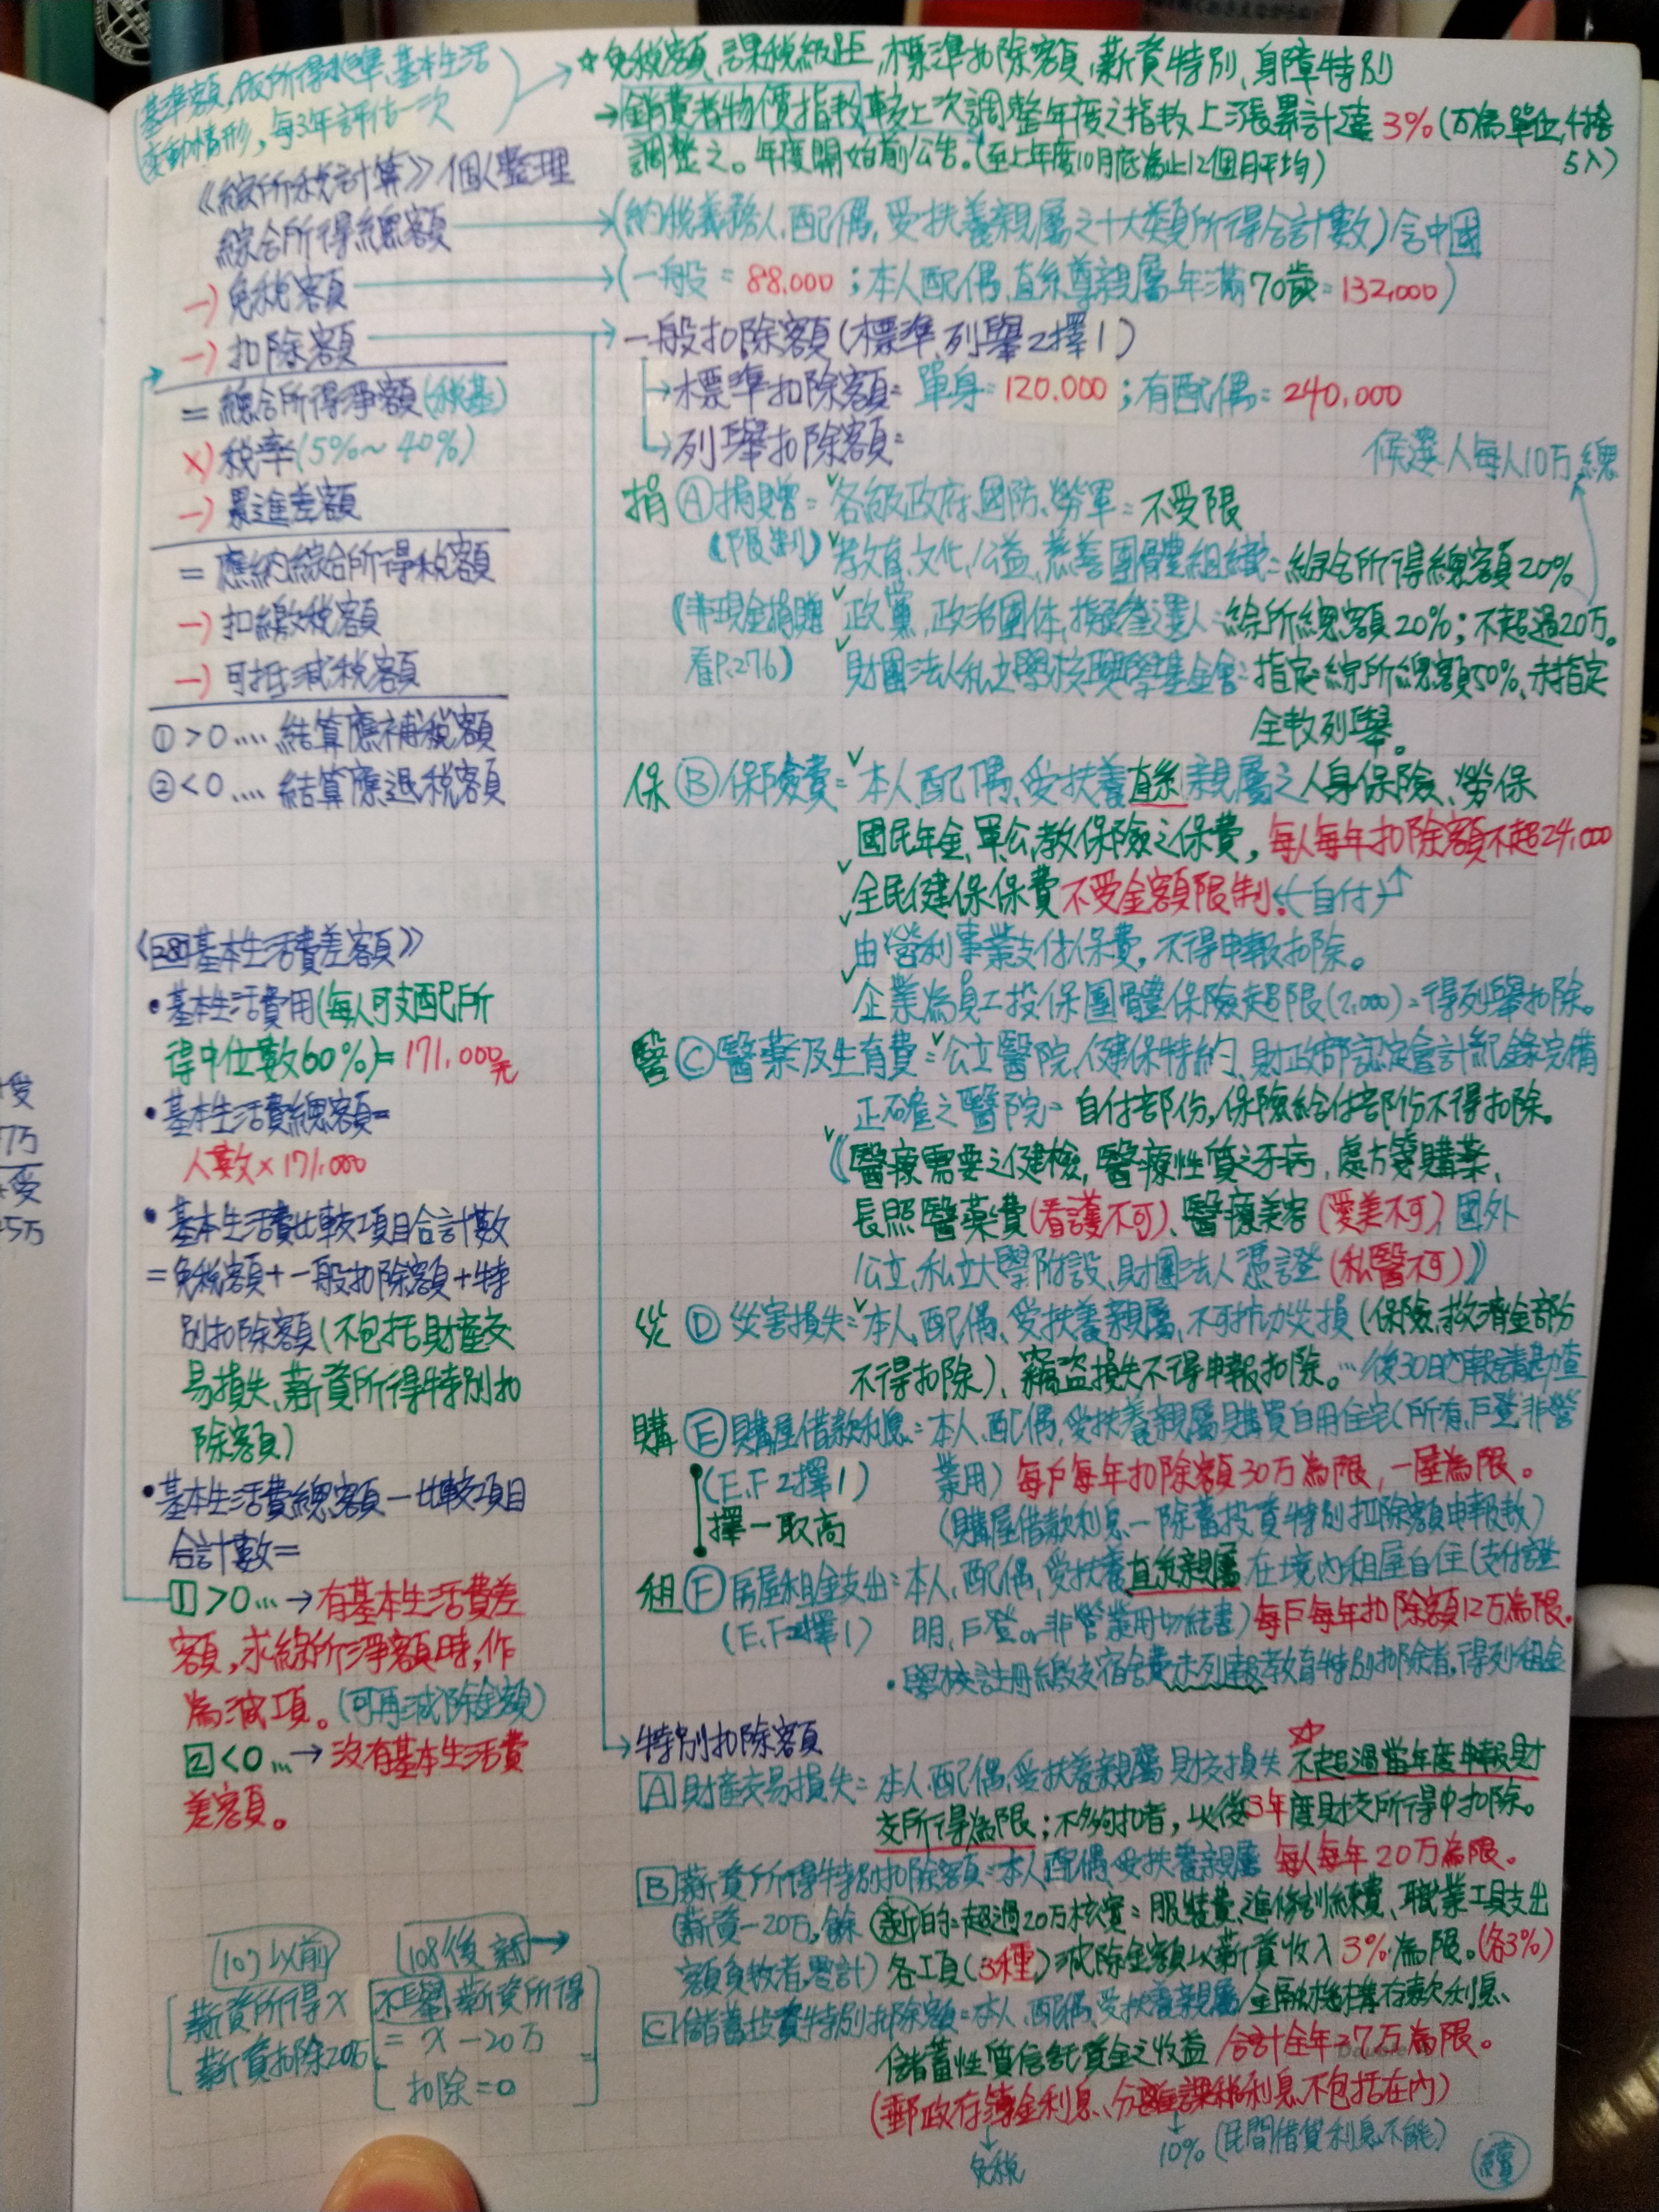 基準額,依所得水準、基本生活
變動情形,每3年評估一次
☆免稅額、課稅級距、標準扣除額、薪資特別、身障特別
→消費者物價指數較上次調整年度之指數上漲累計達3%(万為單位,4捨5入)
調整之。年度開始前公告。(至上年度10月底為止12個月平均)
《綜所稅計算》個人整理
綜合所得總額
(納稅義務人、配偶、受扶養親屬之十大類所得合計數)含中國
-)免稅額
(一般=88,000;本人配偶、直系尊親屬年滿70歲=132,000)
-)扣除額
=綜合所得淨額(稅基)
×)稅率(5%~40%)
-)累進差額
=應納綜合所得稅額
-)扣繳稅額
-)可抵減稅額
①>0....結算應補稅額
②<0....結算應退稅額
基本生活費差額》
•基本生活費用(每人可支配所
得中位數60%)=171,000元
•基本生活費總額=
人數×171,000
•基本生活費比較項目合計數
=免稅額+一般扣除額+特
別扣除額(不包括財產交
易損失、薪資所得特別扣
除額)
•基本生活費總額-比較項目
合計數=
1>0...→有基本生活費差
額,求綜所淨額時,作
為減項。(可再減除金額)
2<0...→沒有基本生活費
差額。
107以前
薪資所得X
薪資扣除20万
108後新→
薪資所得
=X-20万
扣除=0
一般扣除額(標準、列舉2擇1)
→標準扣除額=單身=120,000;有配偶=240,000
→列舉扣除額=
候選人每人10万
捐Ⓐ捐贈=各級政府、國防、勞軍=不受限
《限制》教育、文化、公益、慈善團體組織=綜合所得總額20%
(非現金捐贈 政黨、政治團体、擬參選人:綜所總額20%;不超過20万。
看P.276) 財團法人私立學校興學基金會:指定綜所總額50%、未指定
全數列舉。
保Ⓑ保險費=本人、配偶、受扶養直系親屬之人身保險、勞保
國民年金、軍公教保險之保費,每人每年扣除額不超24,000
全民健保保費不受金額限制。(自付)
由營利事業支付保費,不得申報扣除。
企業為員工投保團體保險超限(2,000)=得列舉扣除。
醫Ⓒ醫藥及生育費=公立醫院、健保特約、財政部認定會計紀錄完備
正確之醫院=自付部份,保險給付部份不得扣除。
《醫療需要之健檢,醫療性質之牙病,處方箋購藥、
長照醫藥費(看護不可)、醫療美容(愛美不可),國外
公立、私立大學附設、財團法人憑證(私醫不可)》
災Ⓓ災害損失=本人、配偶、受扶養親屬、不可抗力災損(保險、救濟金部分
不得扣除)、竊盜損失不得申報扣除。...後30日內報請勘查
購Ⓔ購屋借款利息=本人、配偶、受扶養親屬購買自用住宅(所有、戶登、非營
(E.F 2擇1) 業用)每戶每年扣除額30万為限,一屋為限。
擇一取高 (購屋借款利息-除蓄投資特別扣除額申報數)
租Ⓕ房屋租金支出=本人、配偶、受扶養直系親屬在境內租屋自住(支付證
(E.F2擇1) 明,戶登or非營業用切結書)每戶每年扣除額12万為限。
•學校註冊繳交宿舍費未列報教育特別扣除者,得列租金
→特別扣除額
A財產交易損失=本人、配偶、受扶養親屬財交損失☆不超過當年度申報財
交所得為限;不夠扣者,以後3年度財交所得中扣除。
B薪資所得特別扣除額=本人配偶、受扶養親屬每人每年20万為限。
(薪資-20万,餘 新的=超過20万核實=服裝費、進修訓練費、職業工具支出
額負數者,零計) 各工項(3種)減除金額以薪資收入3%為限。(各3%)
C儲蓄投資特別扣除額=本人、配偶、受扶養親屬金融機構存款利息、
儲蓄性質信託資金之收益合計全年27万為限。
(郵政存簿金利息、分離課稅利息不包括在內)
免稅
10%(民間借貸利息不能)
續